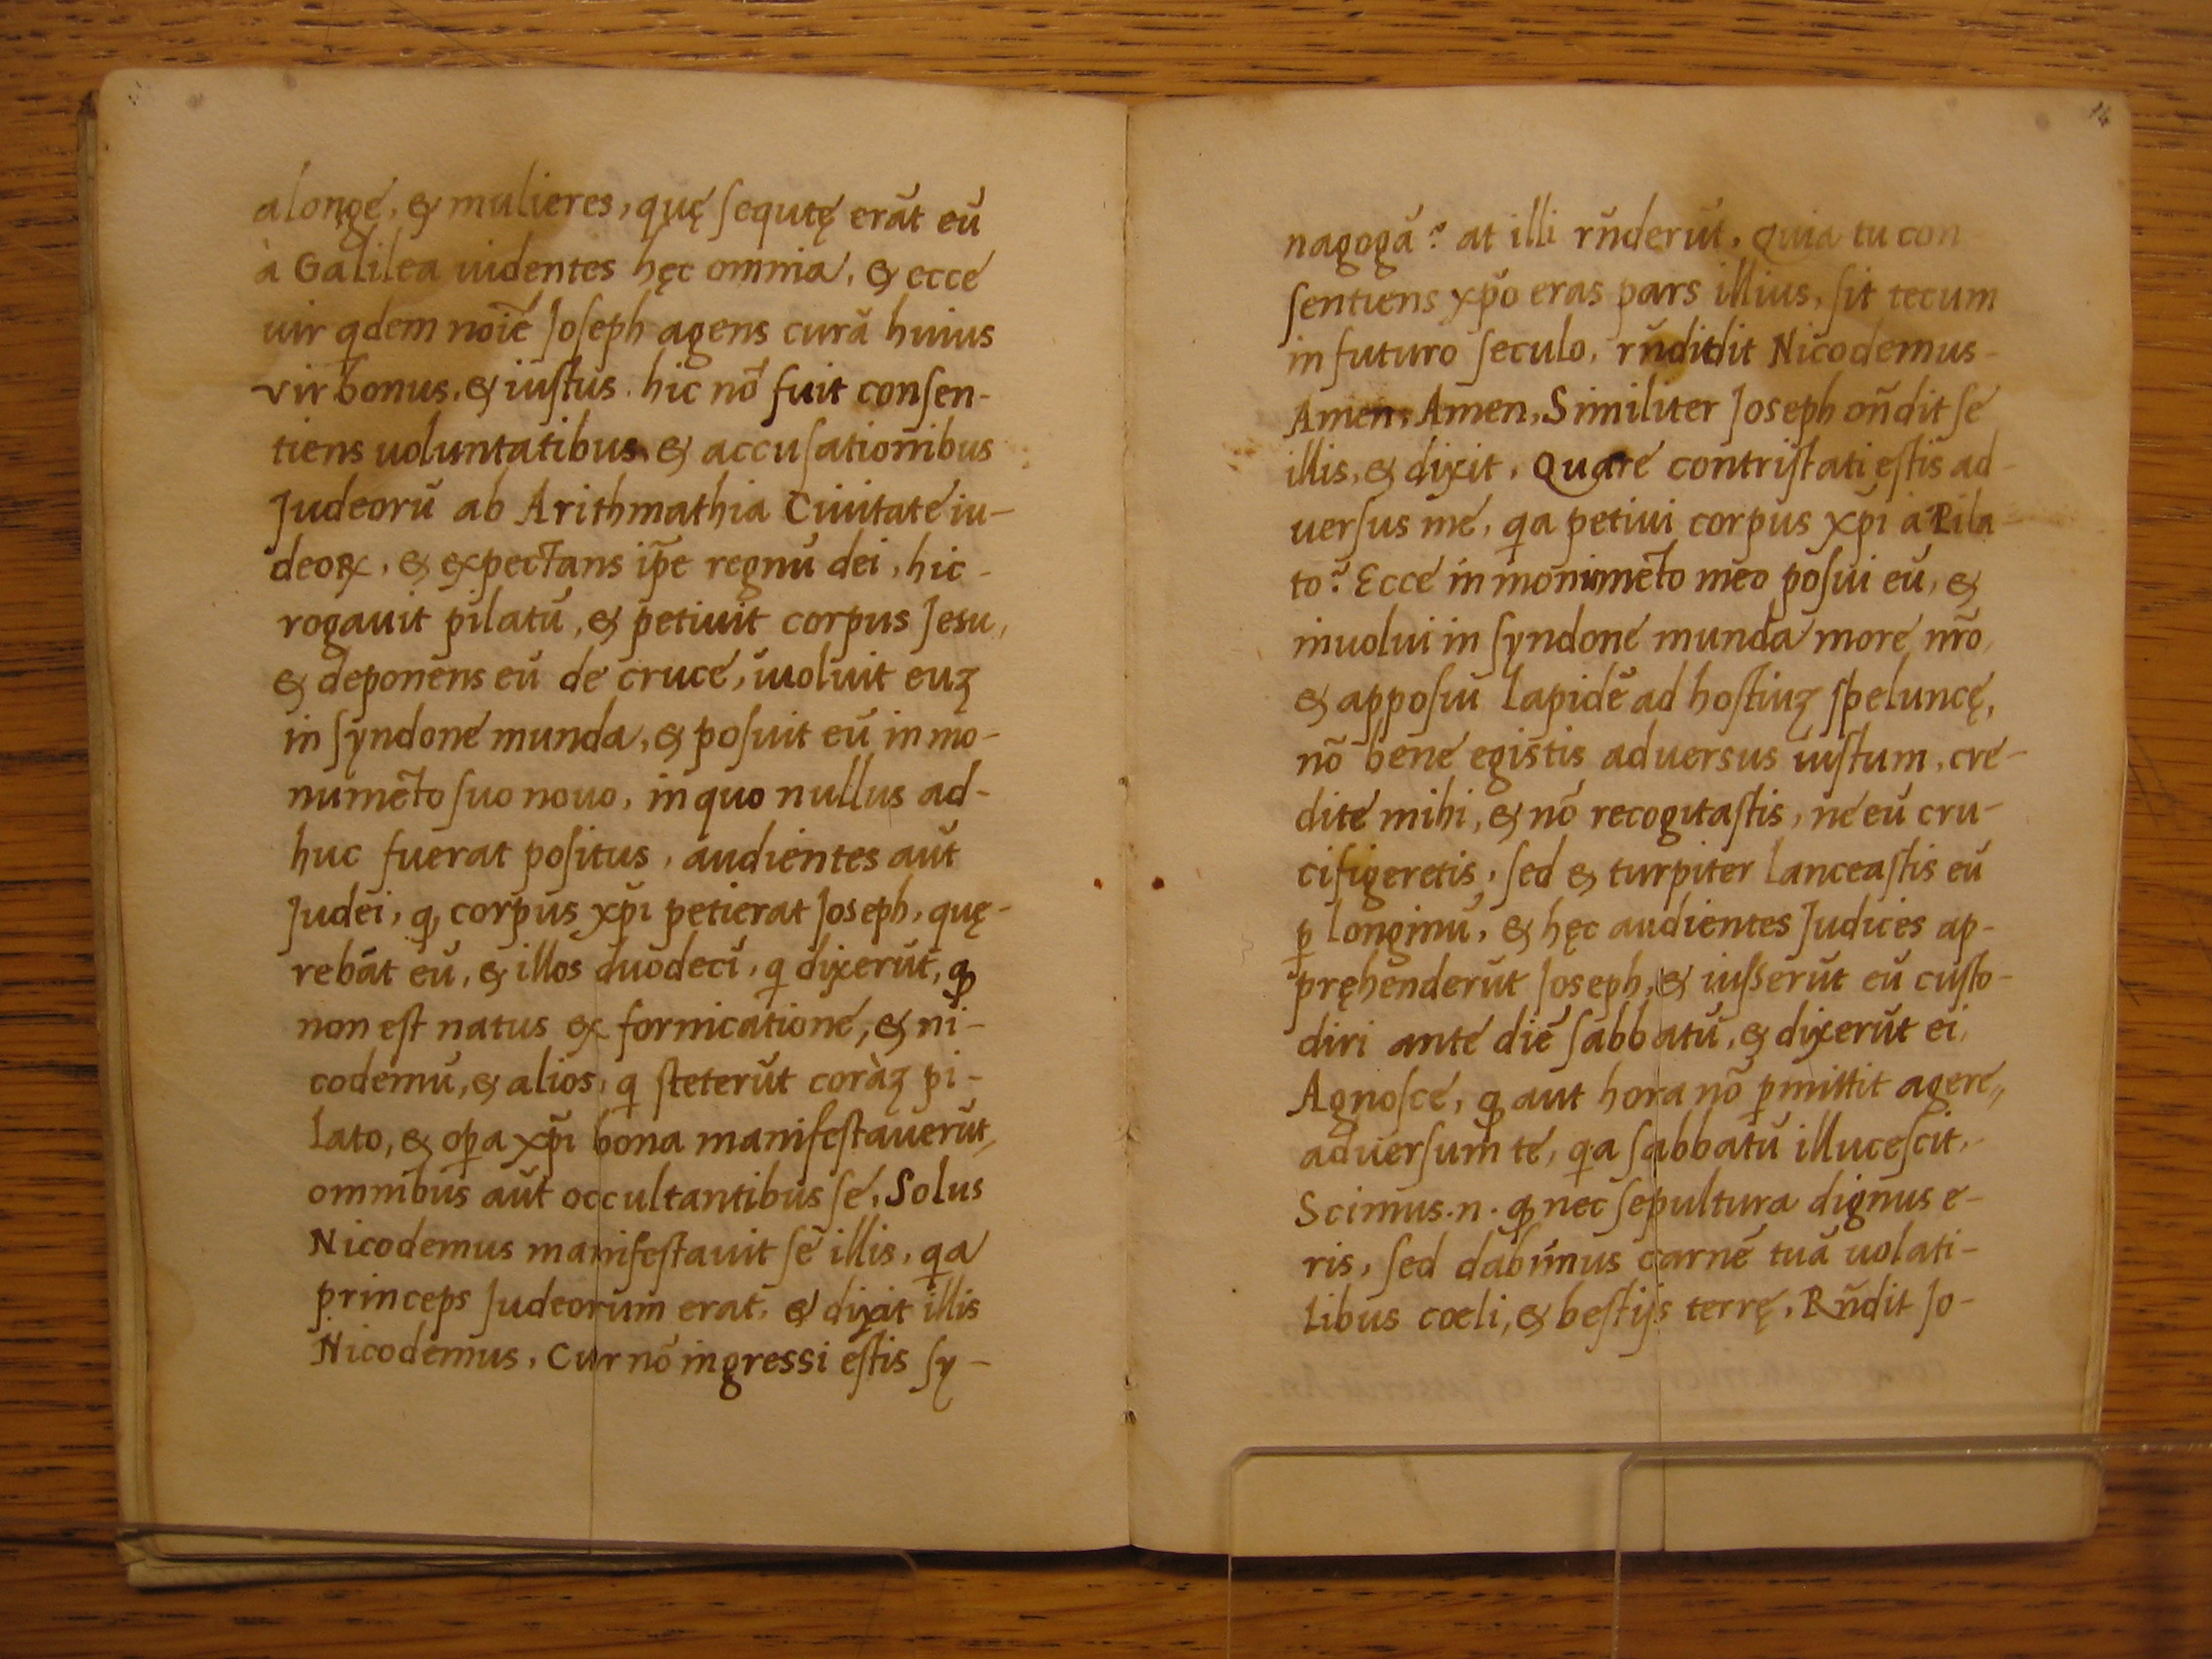 a longe, & mulieres, quę ſequtę erāt eū
à Galilea uidentes hęc omnia, & ecce
uir qdem noīe Joſeph agens curā huius
vir bonus, & iuſtus. hic nō fuit conſen-
tiens uoluntatibus, & accuſationibus
Judeorū ab Arithmathia Ciuitate iu-
deoꝝ, & expectans ip̄e regnū dei, hic-
rogauit pilatū, & petiuit corpus Jesu,
& deponens eū de cruce, īuoluit euꝫ
in ſyndone munda, & poſuit eū in mo-
numēto ſuo nouo, in quo nullus ad-
huc fuerat poſitus, audientes aūt
Judei, ꝙ corpus xp̄i petierat Joseph, quę-
rebāt eū, & illos duodecī, q dixerūt, ꝙ
non eſt natus ex fornicatione, & ni-
codemū, & alios, q ſteterūt coràꝫ pi-
lato, & oꝑa xp̄i bona manifeſtauerūt,
omnibus aūt occultantibus ſe, Solus
Nicodemus manifeſtauit ſe illis, qa
princeps Judeorum erat, & dixit illis
Nicodemus, Cur nō ingressi eſtis ſy-
14
nagogā? at illi rn̄derūt, Quia tu con
ſentiens xp̄o eras pars illius, ſit tecum
in futuro ſeculo, rn̄didit Nicodemus-
Amen, Amen, Similiter Joseph on̄dit ſe
illis, & dixit, Quare contriſtati eſtis ad-
uerſus me, qa petiui corpus xp̄i à Pila-
to? Ecce in monumēto meo poſui eū, &
inuolui in ſyndone munda more nr̄o,
& appoſui lapidē ad hoſtiuꝫ ſpeluncę,
nō bene egistis aduersus iuſtum, cre-
dite mihi, & nō recogitaſtis, ne eū cru-
cifigeretis, ſed & turpiter lanceaſtis eū
ꝑ longinū, & hęc audientes Judices ap-
pręhenderūt Joseph, & iuſserūt eū cuſto-
diri ante diē ſabbatū, & dixerūt ei,
Agnoſce, ꝙ aut hora nō ꝑmittit agere,,
aduerſum te, qa ſabbatū illuceſcit,
Scimus .n. ꝙ nec ſepultura dignus e-
ris, ſed dabimus carnē tuā uolati-
libus cœli, & beſtijs terrę, Rn̄dit Jo-